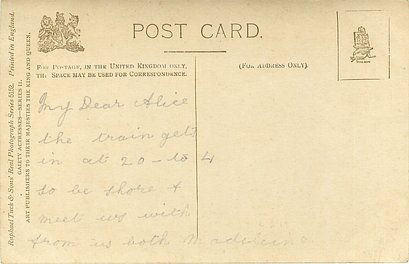 POST CARD.
FOR POSTAGE, IN THE UNITED KINGDOM ONLY,
THIS SPACE MAY BE USED FOR CORRESPONDENCE.
(FOR ADDRESS ONLY.)
Raphael Tuck & Sons' Real Photograph Series 5132. Printed in England.
GAIETY ACTRESSES—SERIES II.
ART PUBLISHERS TO THEIR MAJESTIES THE KING AND QUEEN.
My Dear Alice
the train gets
in at 20-to 4
so be shore &
meet us with
from us both Madeline